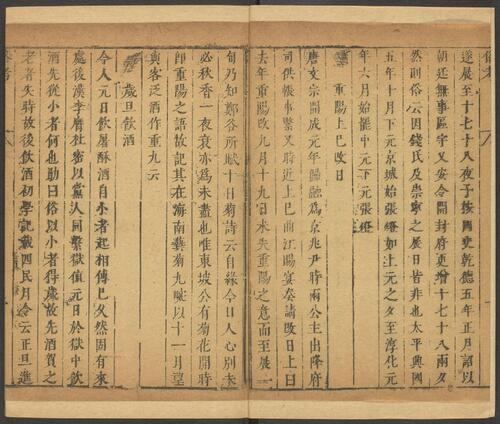 遂展至十七十八夜予按國史乾德五年正月詔以
朝廷無事區宇乂安令開封府更增十七十八兩夕
然則俗云因錢氏及崇寧之展日皆非也太平興國
五年十月下元京城始張燈如上元之夕至淳化元
年六月始罷中元下元張燈
重陽上巳改日
唐文宗開成元年歸融爲京兆尹時兩公主出降府
司供帳事繁又時近上巳曲江賜宴奏請改日上曰
去年重陽取九月十九日未失重陽之意而至展一
旬乃知鄭谷所賦十日菊詩云自緣今日人心別未
必秋香一夜衰亦爲未盡也唯東坡公有菊花開時
即重陽之語故記其在海南藝菊九畹以十一月望
與客泛酒作重九云
歲旦飲酒
今人元日飲屠酥酒自小者起相傳已久然固有來
處後漢李膺杜密以黨人同繫獄值元日於獄中飲
酒先從小者何也勛曰俗以小者得歲故先酒賀之
老者失時故後飲酒初學記載四民月令云正旦進